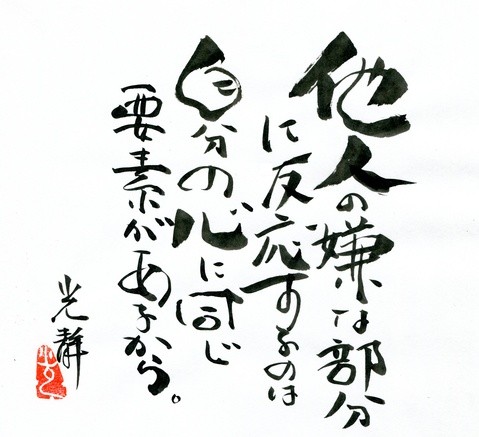 他人の嫌な部分
に反応するのは
自分の心に同じ
要素があるから。
光静